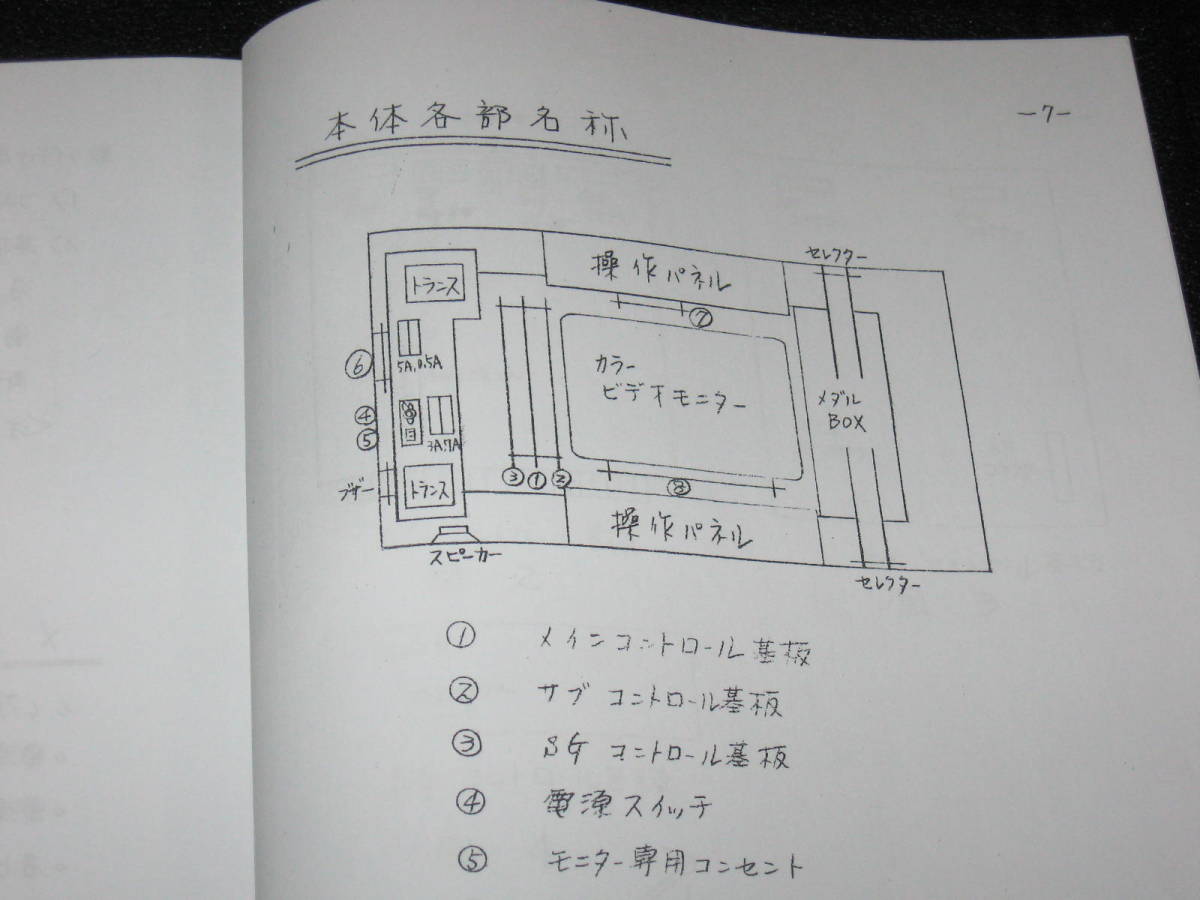 本体各部名称
-7-
セレクター
操作パネル
トランス
⑦
⑥
5A,0.5A
カラー
ビデオモニター
メダル
BOX
④
⑤
3A,7A
③
①
②
⑧
ブザー
トランス
操作パネル
スピーカー
セレクター
① メインコントロール基板
② サブコントロール基板
③ SG コントロール基板
④ 電源スイッチ
⑤ モニター専用コンセント